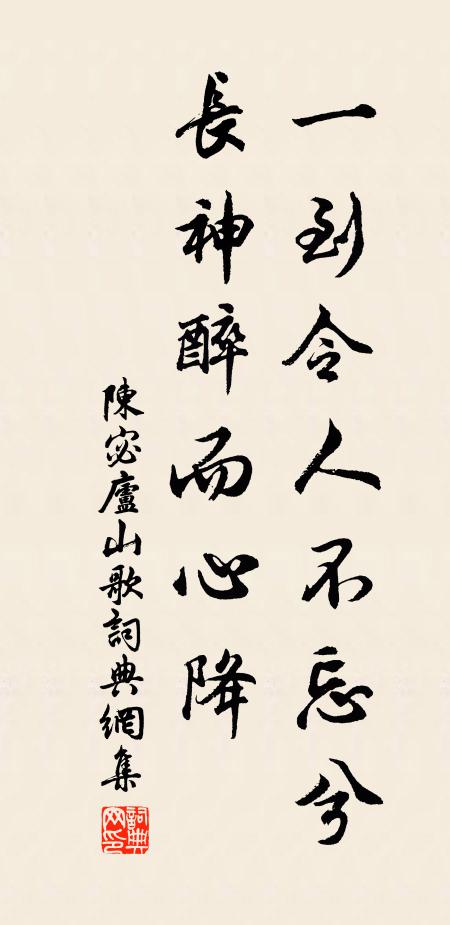 一到令人不忘兮
長神醉而心降
陳宓廬山歌詞典網集
詞典网印